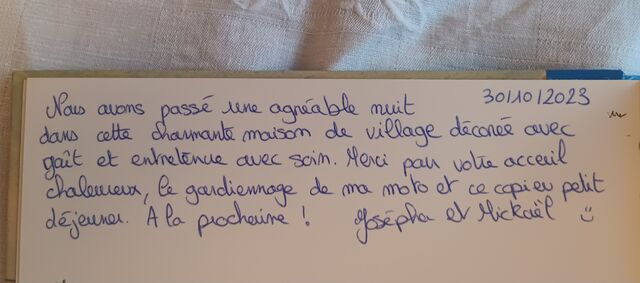 Nous avons passé une agréable nuit 30/10/2023
dans cette charmante maison de village décorée avec
gaît et entretenue avec soin. Merci pour votre acceuil
chaleureux, le gardiennage de ma moto et ce copieu petit
déjeuner. A la prochaine ! Josépha et Mickaël